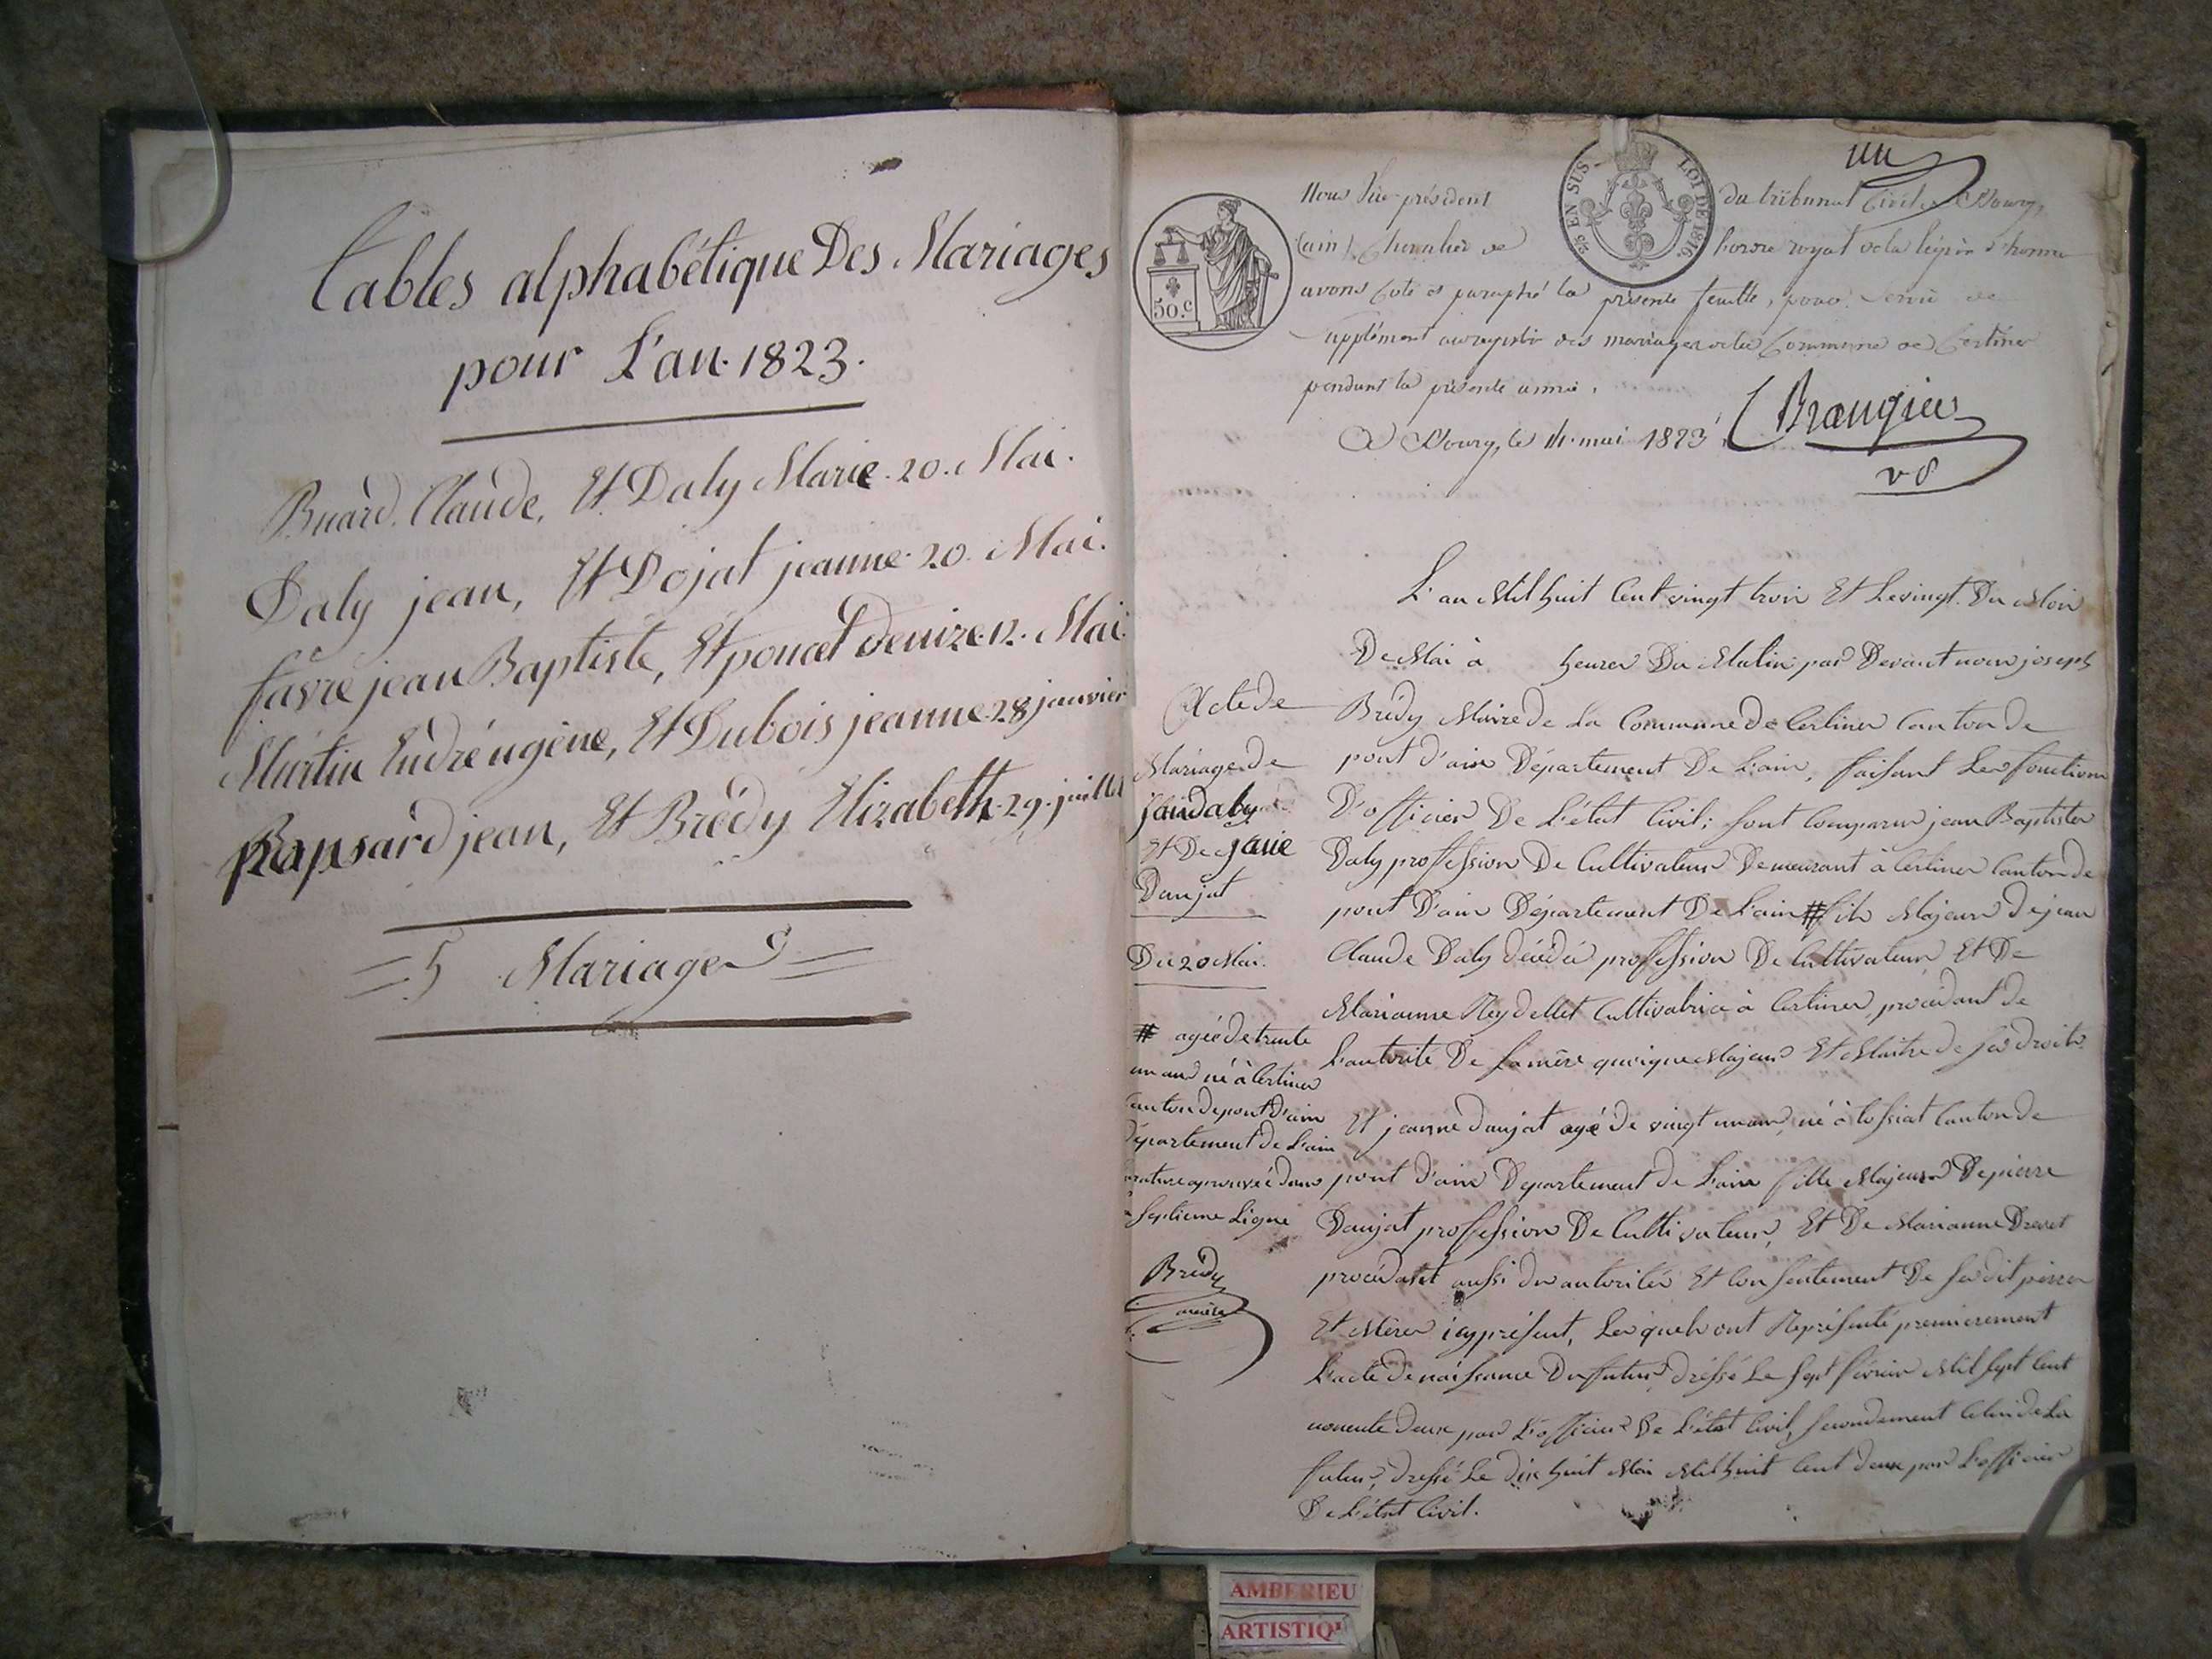 Tables alphabétique Des Mariages
pour L'an 1823.
Buard Claude, Et Daly Marie 20. Mai.
Daly jean, Et Dojat jeanne 20. Mai.
favre jean Baptiste, Et poncet denize 12. Mai
Martin André ugène, Et Dubois jeanne 28 janvier
Rapsard jean, Et Brédy Elizabeth 29. juillet
= 5 Mariages =
un
Nous Vice-président du tribunal Civil de Bourg,
(ain) Chevalier de l'ordre royal de la légion d'honneur
avons Coté et paraphé la présente feuille, pour Servir de
supplément au registre des mariages de la Commune de Certines
pendant la présente année.
A Bourg, le 14. mai 1823
25 EN SUS
LOI DE 1816
50.c
L'an Mil huit Cent vingt trois Et Le vingt Du Mois
De Mai à heures Du Matin par Devant nous joseph
Brédy Maire de La Commune de Certines Canton de
pont d'ain Département De L'ain, faisant Les fonctions
D'officier De L'état Civil; sont Comparus jean Baptiste
Daly profession De Cultivateur Demeurant à Certines Canton de
pont D'ain Département De L'ain # fils Majeur de jean
Claude Daly décédé profession De Cultivateur Et De
Marianne Reydellet Cultivatrice à Certines, procédant de
L'autorité De sa mère quoique Majeur Et Maitre de ses droits.
Et jeanne daujat agé De vingt un ans, né à tossiat Canton de
pont d'ain Département de L'ain fille Majeure De pierre
Daujat profession De Cultivateur, Et De Marianne Drevet
procédant aussi des autorités Et Consentement De ses dit pères
Et Mères icy présent, Lesquels ont Représenté premierement
L'acte De naissance Du futur, dressé Le sept février Mil sept Cent
nonente deux par L'officier De L'état Civil, secondement Celui de La
future, dressé Le dix huit Mai Mil huit Cent deux par L'officier
De L'état Civil.
Acte de
Mariage de
Jean daly
Et De Janne
Daujat
Du 20 Mai.
# agée de trente
un ans né à Certines
Canton de pont D'ain
Département de L'ain
rature aprouvée dans
septieme Ligne
Brédy
maire
AMBERIEU
ARTISTIQ